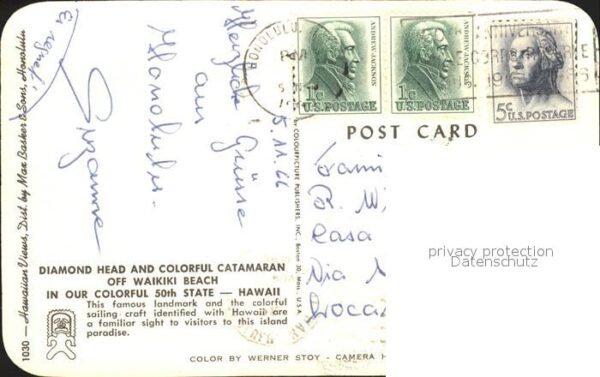 Es regnet!
Herzliche Grüsse
aus
Honolulu.
Suzanne
5.11.66
Fami
R. Wi
Casa
Via M
Locar
HONOLULU
PM
ANDREW JACKSON
1c
U.S. POSTAGE
ANDREW JACKSON
1c
U.S. POSTAGE
5c
U.S. POSTAGE
POST CARD
1030 — Hawaiian Views, Dist. by Max Basker & Sons, Honolulu
BY COLOURPICTURE PUBLISHERS, INC., Boston 30, Mass., U.S.A.
DIAMOND HEAD AND COLORFUL CATAMARAN
OFF WAIKIKI BEACH
IN OUR COLORFUL 50th STATE — HAWAII
This famous landmark and the colorful
sailing craft identified with Hawaii are
a familiar sight to visitors to this island
paradise.
COLOR BY WERNER STOY - CAMERA H
privacy protection
Datenschutz